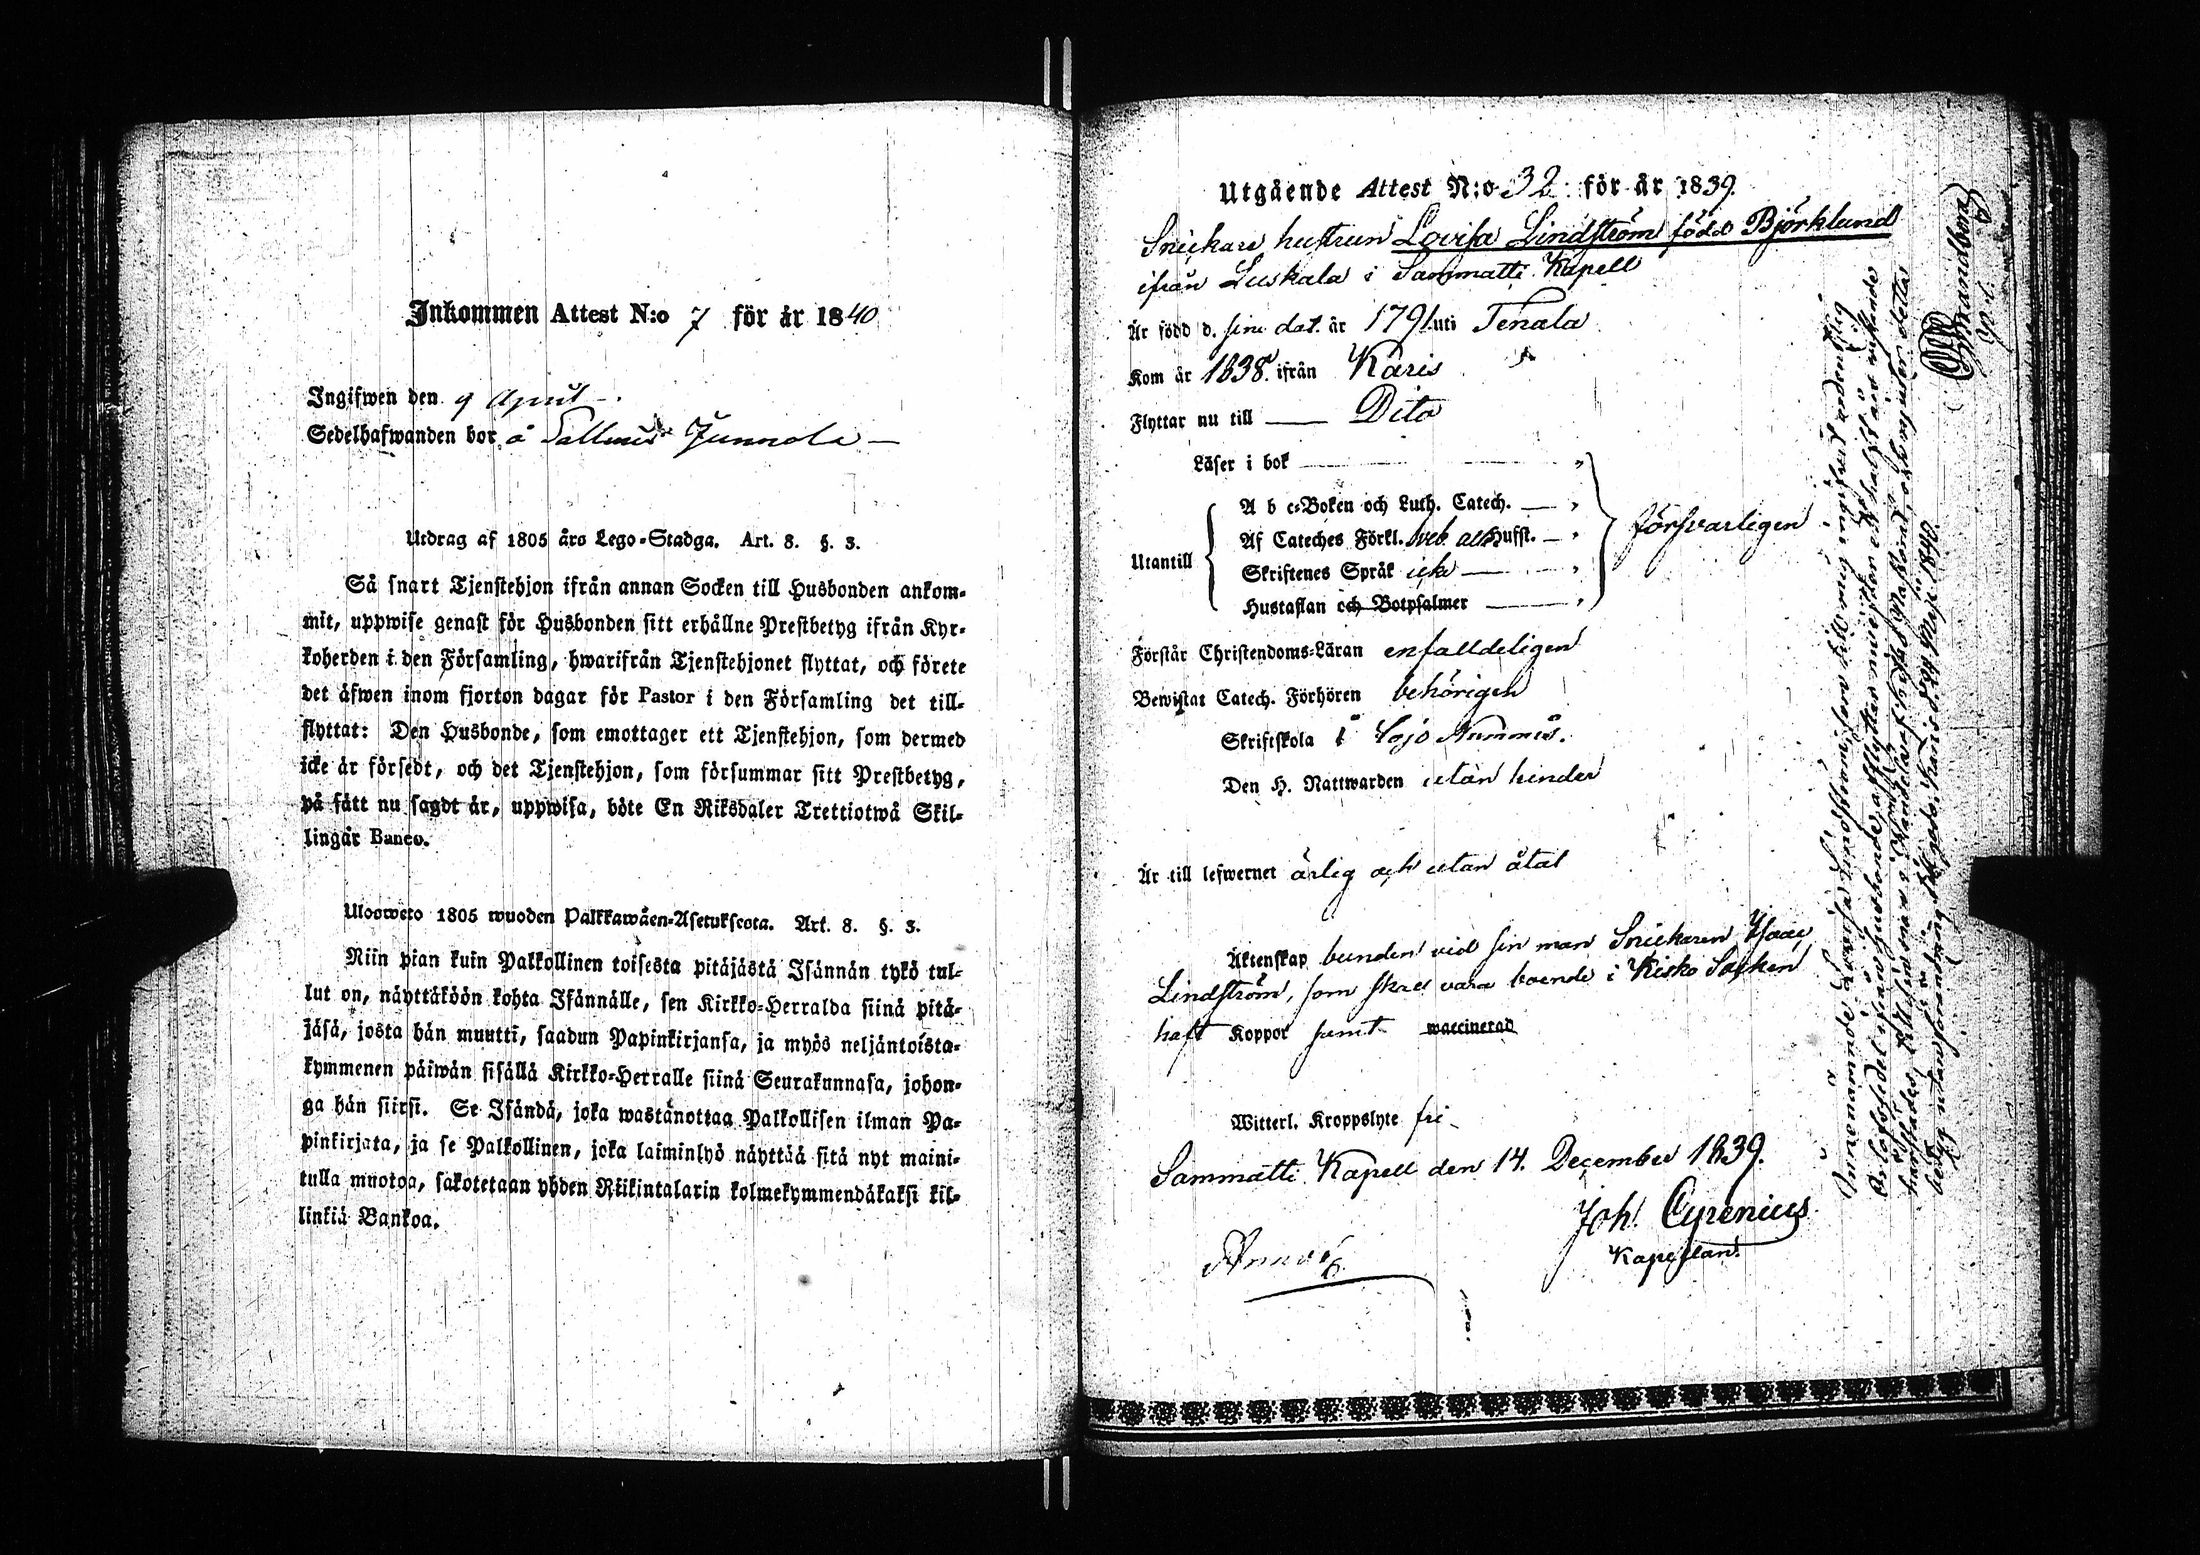 Inkommen Attest N:o 7 för år 1840
Ingifwen den 9 April
Sedelhafwanden bor å Sallmis Junnola
Utdrag af 1805 års Lego-Stadga. Art. 8. §. 3.
Så snart Tjenstehjon ifrån annan Socken till Husbonden ankom-
mit, uppwise genast för Husbonden sitt erhållne Prestbetyg ifrån Kyr-
koherden i den Församling, hwarifrån Tjenstehjonet flyttat, och förete
det äfwen inom fjorton dagar för Pastor i den Församling det till-
flyttat: Den Husbonde, som emottager ett Tjenstehjon, som dermed
icke är försedt, och det Tjenstehjon, som försummar sitt Prestbetyg,
på sätt nu sagdt är, uppwisa, böte En Riksdaler Trettiotwå Skil-
lingar Banco.
Ulosweto 1805 wuoden Palkkawäen-Asetuksesta. Art. 8. §. 3.
Niin pian kuin Palkollinen toisesta pitäjästä Isännän tykö tul-
lut on, näyttäköön kohta Isännälle, sen Kirkko-Herralda siinä pitä-
jäsä, josta hän muutti, saadun Papinkirjansa, ja myös neljäntoista-
kymmenen päiwän sisällä Kirkko-Herralle siinä Seurakunnasa, johon-
ga hän siirsi. Se Isändä, joka wastanottaa Palkollisen ilman Pa-
pinkirjata, ja se Palkollinen, joka laiminlyö näyttää sitä nyt maini-
tulla muotoa, sakotetaan yhden Riikintalarin kolmekymmendäkaksi kil-
linkiä Bankoa.
Utgående Attest N:o 32 för år 1839.
Snickare hustrun Lovisa Lindström född Björklund
ifrån Luskala i Sammatti Kapell
Är född d. sine dat. år 1791 uti Tenala
Kom år 1838. ifrån Karis
Flyttar nu till Dito
Läser i bok
A b c-Boken och Luth. Catech.
Utantill Af Cateches Förkl. Hufst. försvarligen
Skriftenes Språk icke
Hustaflan och Botpsalmer
Förstår Christendoms-Läran enfalldeligen
Bewistat Catech. Förhören behörigen
Skriftskola i Lojo Nummis.
Den H. Nattwarden utan hinder
Är till lefwernet ärlig och utan åtal
Äktenskap bunden vid sin man Snickaren Isaac
Lindström, som skall vara boende i Kisko Socken
haft Koppor samt waccinerad
Witterl. Kroppslyte fri
Sammatti Kapell den 14. December 1839.
Joh. Cyrenius
Kapellan.
Innenämnde Lovisa Lindström, som till mig ingifvit ordentlig
Orlofssedel ifrån husbonde, afflyttar
Karis d. Maji 1840.
Strandborg